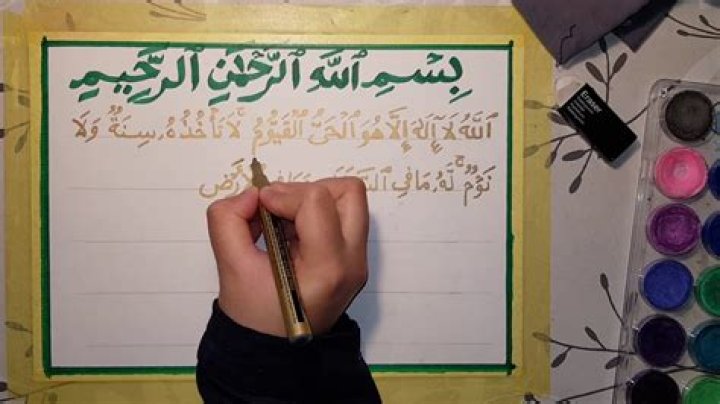 بِسْمِ ٱللَّهِ ٱلرَّحْمَٰنِ ٱلرَّحِيمِ
ٱللَّهُ لَآ إِلَٰهَ إِلَّا هُوَ ٱلْحَىُّ ٱلْقَيُّومُ ۚ لَا تَأْخُذُهُۥ سِنَةٌ وَلَا
نَوْمٌ ۚ لَّهُۥ مَا فِى ٱلْأَرْضِ
Eraser